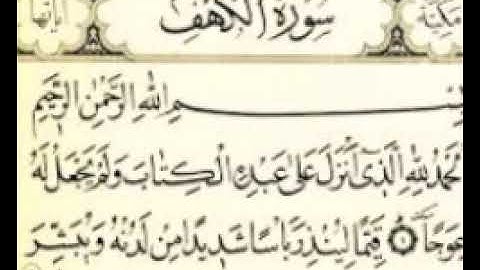 مكية سورة الكهف آياتها
بسم الله الرحمن الرحيم
الحمد لله الذي أنزل على عبده الكتاب ولم يجعل له
عوجا ۝ قيما لينذر بأسا شديدا من لدنه ويبشر